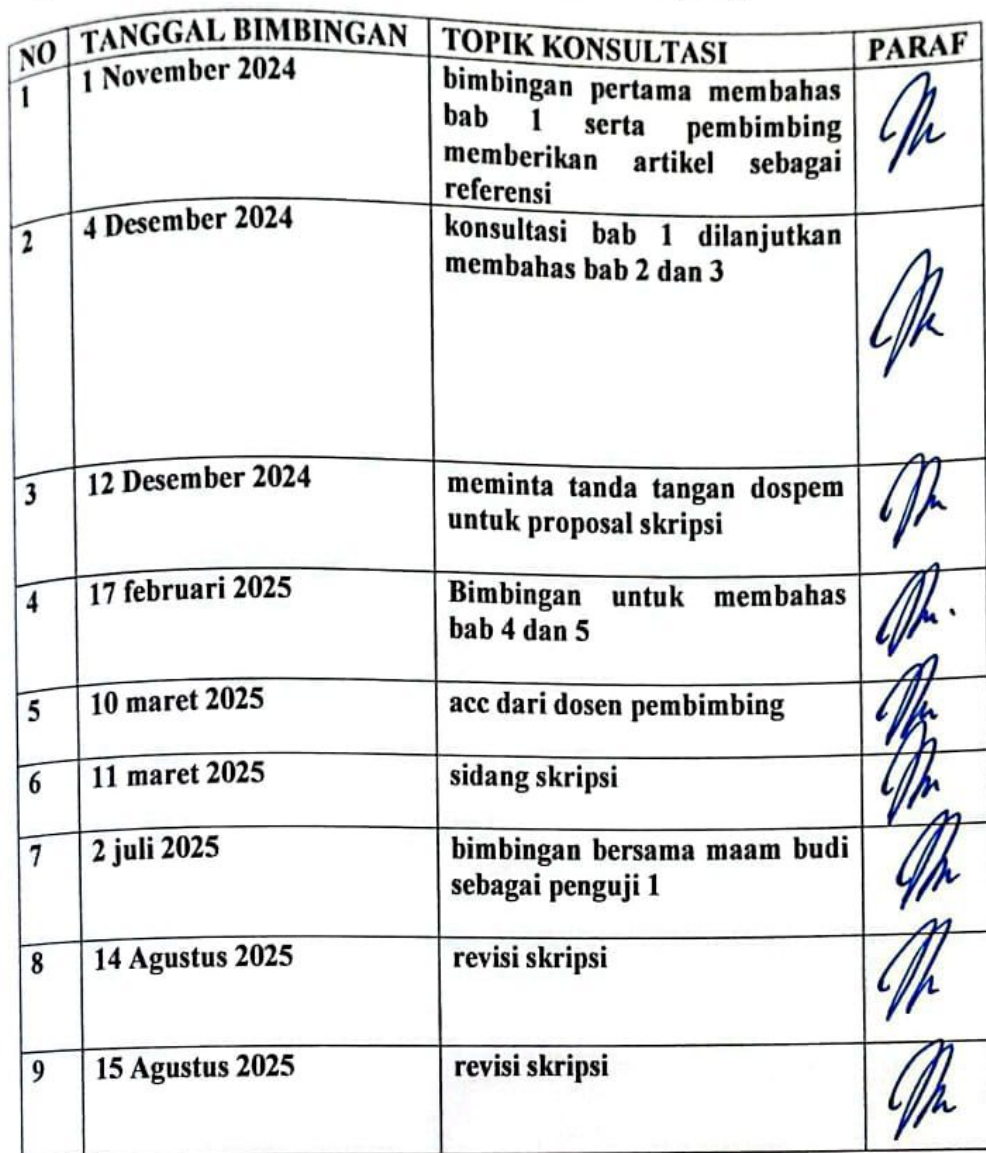 NO TANGGAL BIMBINGAN TOPIK KONSULTASI PARAF
1 1 November 2024 bimbingan pertama membahas
bab 1 serta pembimbing
memberikan artikel sebagai
referensi
2 4 Desember 2024 konsultasi bab 1 dilanjutkan
membahas bab 2 dan 3
3 12 Desember 2024 meminta tanda tangan dospem
untuk proposal skripsi
4 17 februari 2025 Bimbingan untuk membahas
bab 4 dan 5
5 10 maret 2025 acc dari dosen pembimbing
6 11 maret 2025 sidang skripsi
7 2 juli 2025 bimbingan bersama maam budi
sebagai penguji 1
8 14 Agustus 2025 revisi skripsi
9 15 Agustus 2025 revisi skripsi